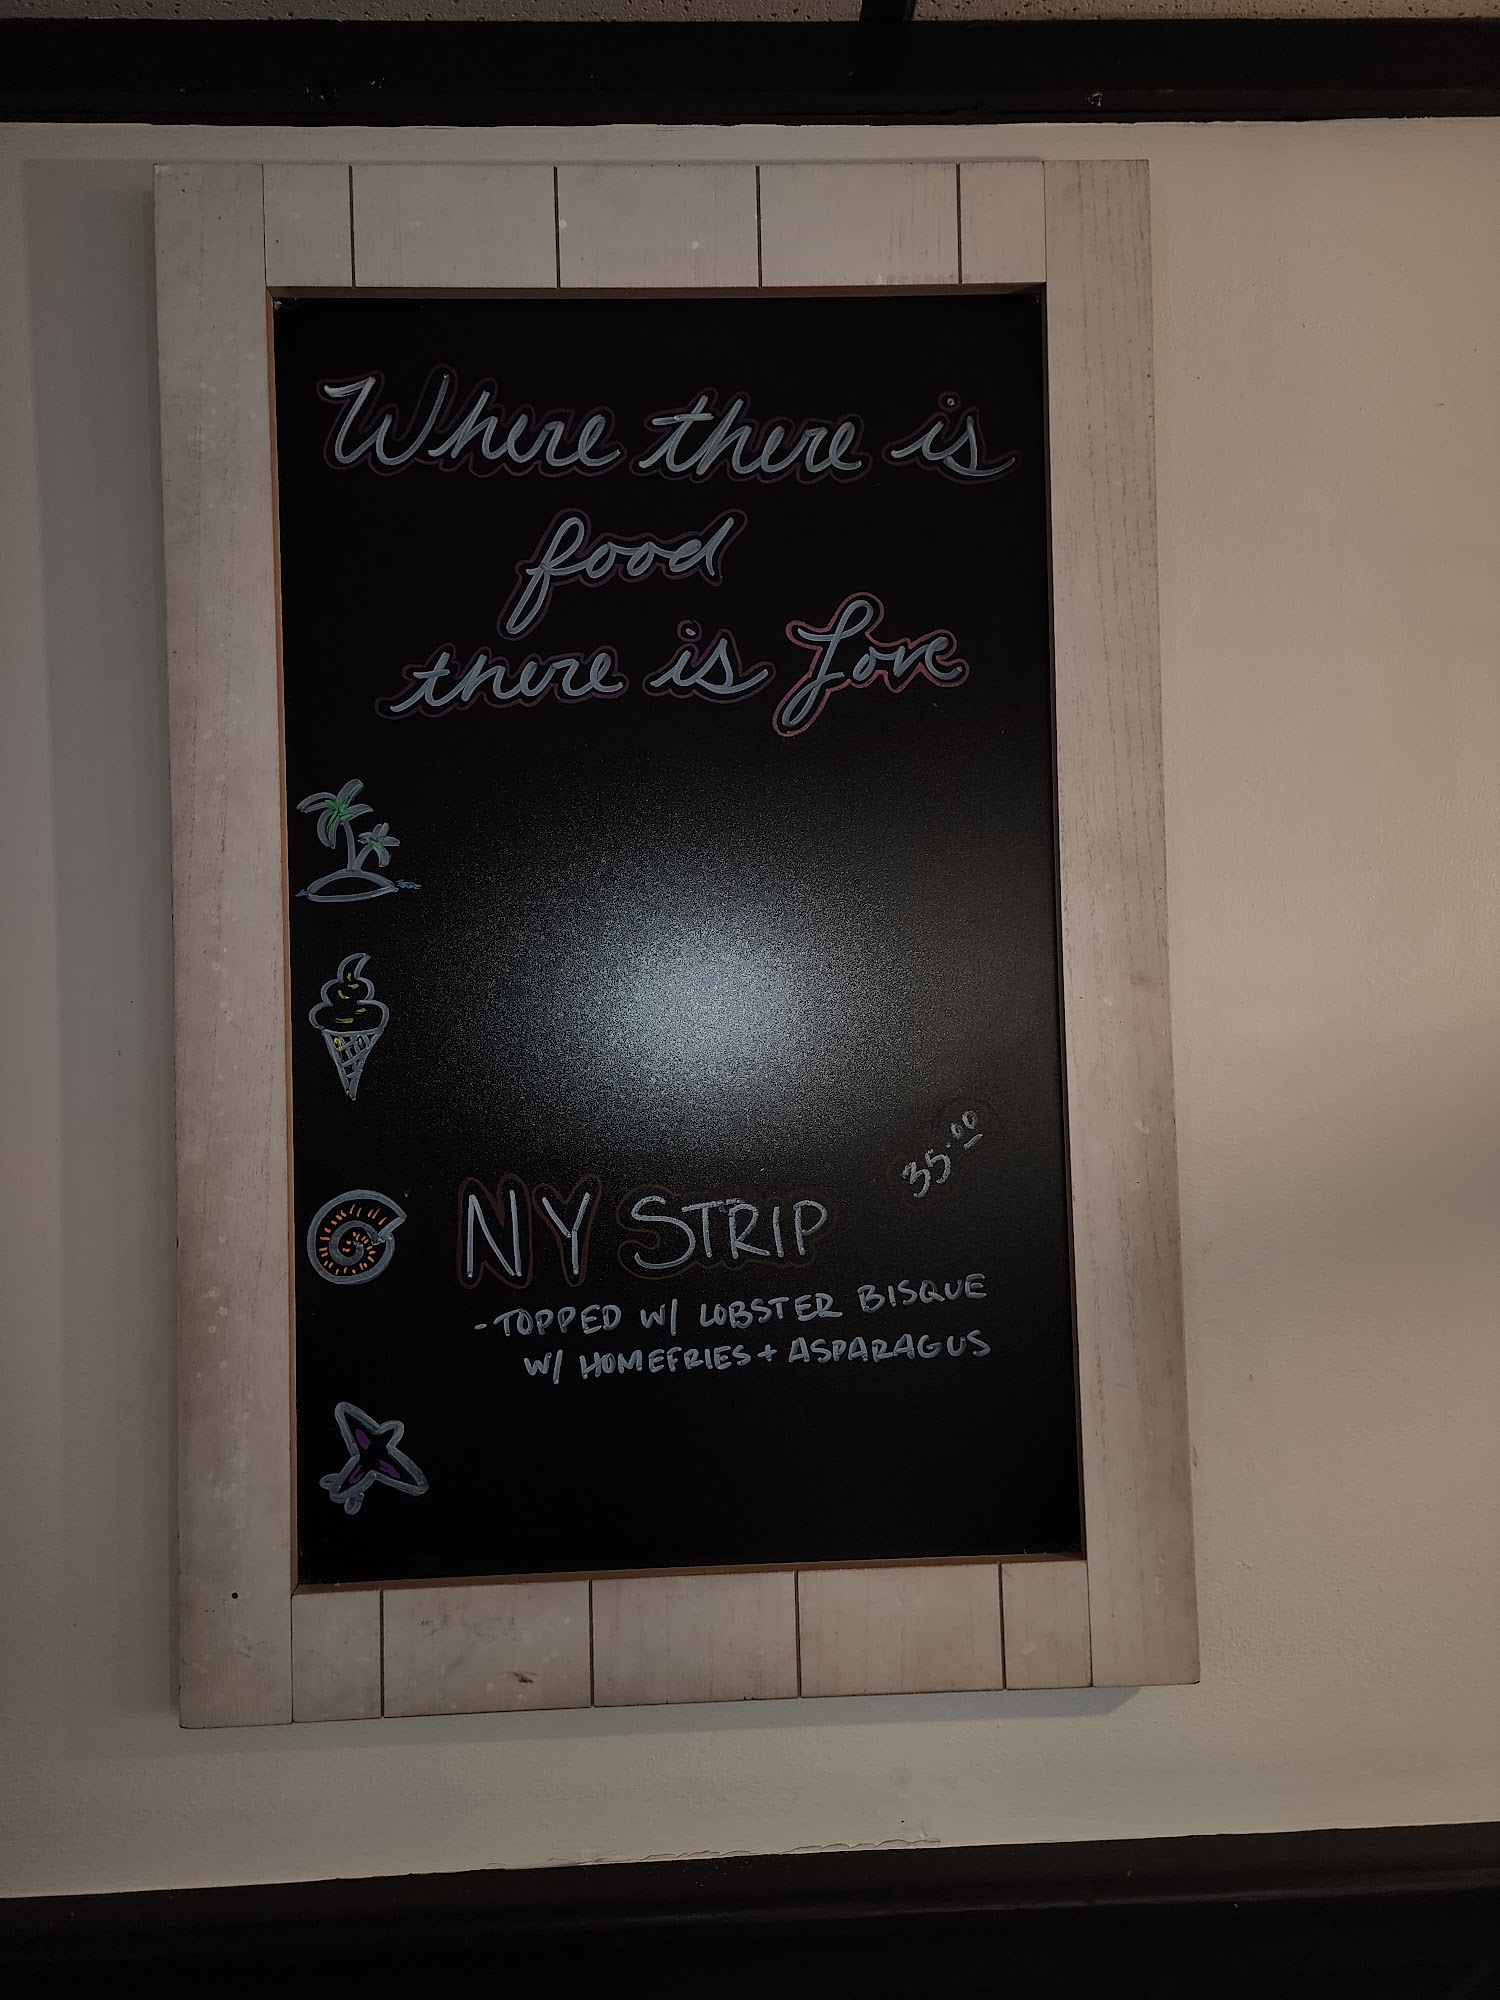 Where there is
food
there is Love
35.00
NY STRIP
-TOPPED W/ LOBSTER BISQUE
W/ HOMEFRIES + ASPARAGUS